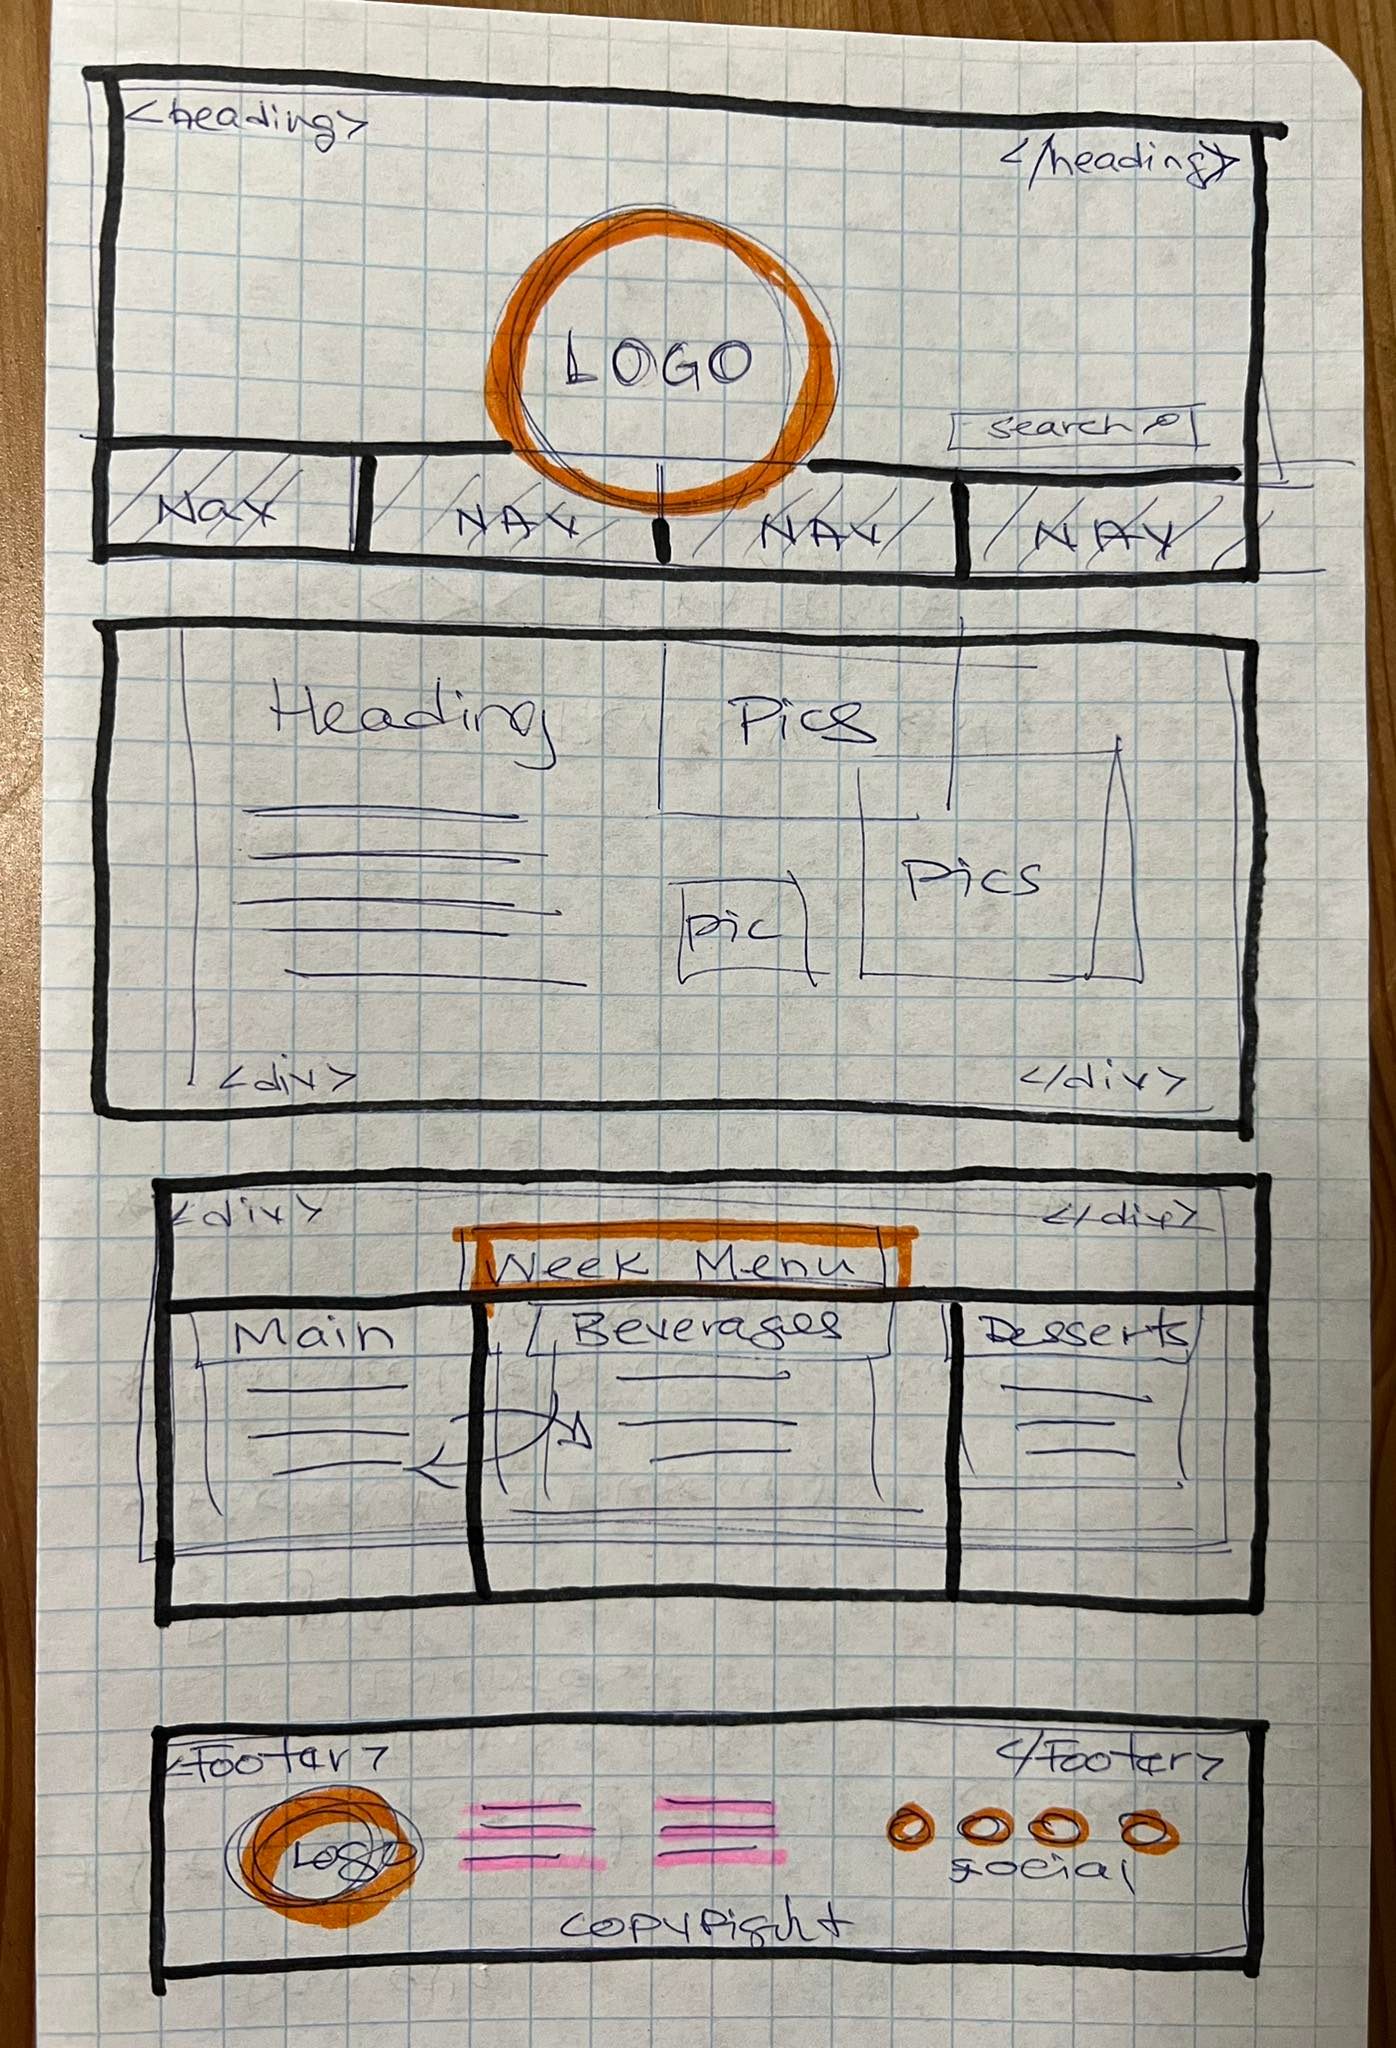 <heading>
</heading>
LOGO
search
Nav NAV NAV NAV
Heading
Pics
Pics
pic
<div> </div>
<div> </div>
Week Menu
Main Beverages Desserts
<Footer> </Footer>
LOGO
social
copyright